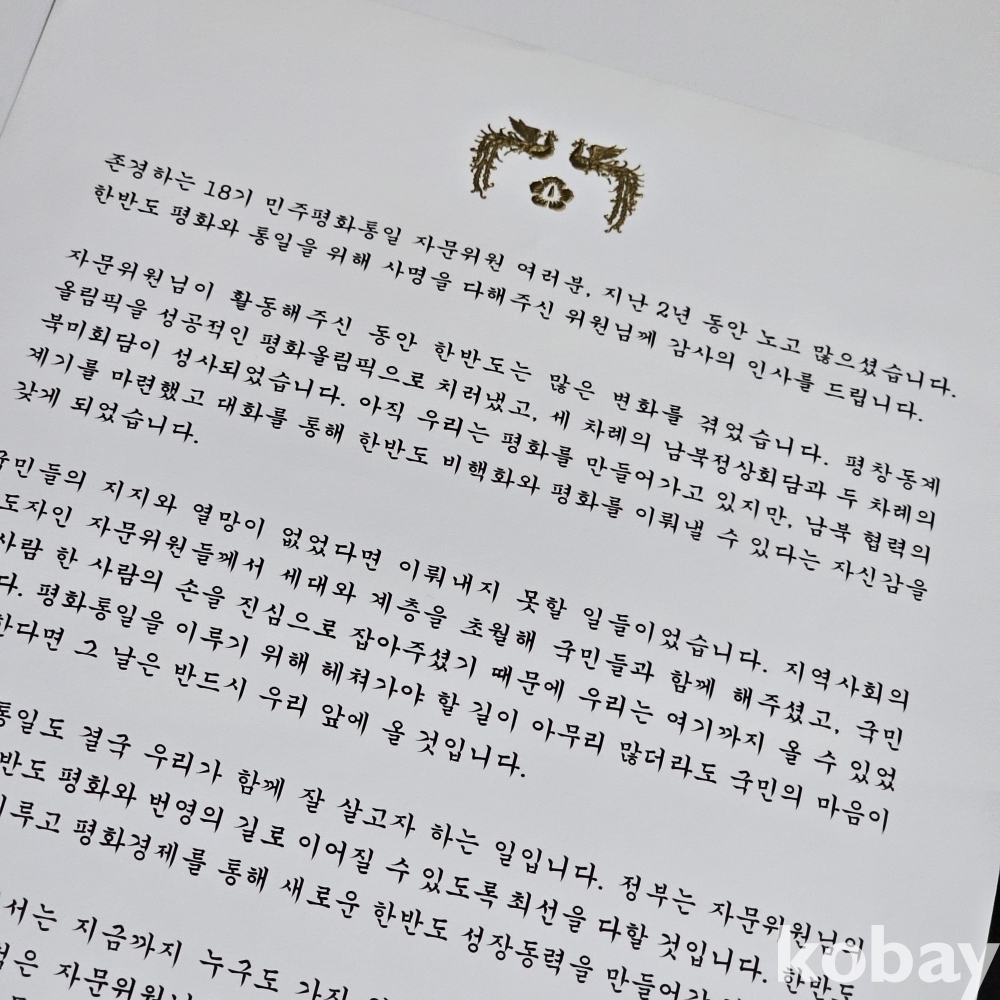 존경하는 18기 민주평화통일 자문위원 여러분, 지난 2년 동안 노고 많으셨습니다.
한반도 평화와 통일을 위해 사명을 다해주신 위원님께 감사의 인사를 드립니다.
자문위원님이 활동해주신 동안 한반도는 많은 변화를 겪었습니다. 평창동계
올림픽을 성공적인 평화올림픽으로 치러냈고, 세 차례의 남북정상회담과 두 차례의
북미회담이 성사되었습니다. 아직 우리는 평화를 만들어가고 있지만, 남북 협력의
계기를 마련했고 대화를 통해 한반도 비핵화와 평화를 이뤄낼 수 있다는 자신감을
갖게 되었습니다.
국민들의 지지와 열망이 없었다면 이뤄내지 못할 일들이었습니다. 지역사회의
도자인 자문위원들께서 세대와 계층을 초월해 국민들과 함께 해주셨고, 국민
사람 한 사람의 손을 진심으로 잡아주셨기 때문에 우리는 여기까지 올 수 있었
다. 평화통일을 이루기 위해 헤쳐가야 할 길이 아무리 많더라도 국민의 마음이
한다면 그 날은 반드시 우리 앞에 올 것입니다.
통일도 결국 우리가 함께 잘 살고자 하는 일입니다. 정부는 자문위원님의
반도 평화와 번영의 길로 이어질 수 있도록 최선을 다할 것입니다. 한반도
이루고 평화경제를 통해 새로운 한반도 성장동력을 만들어가
서는 지금까지 누구도 가지
은 자문위원님
kobay